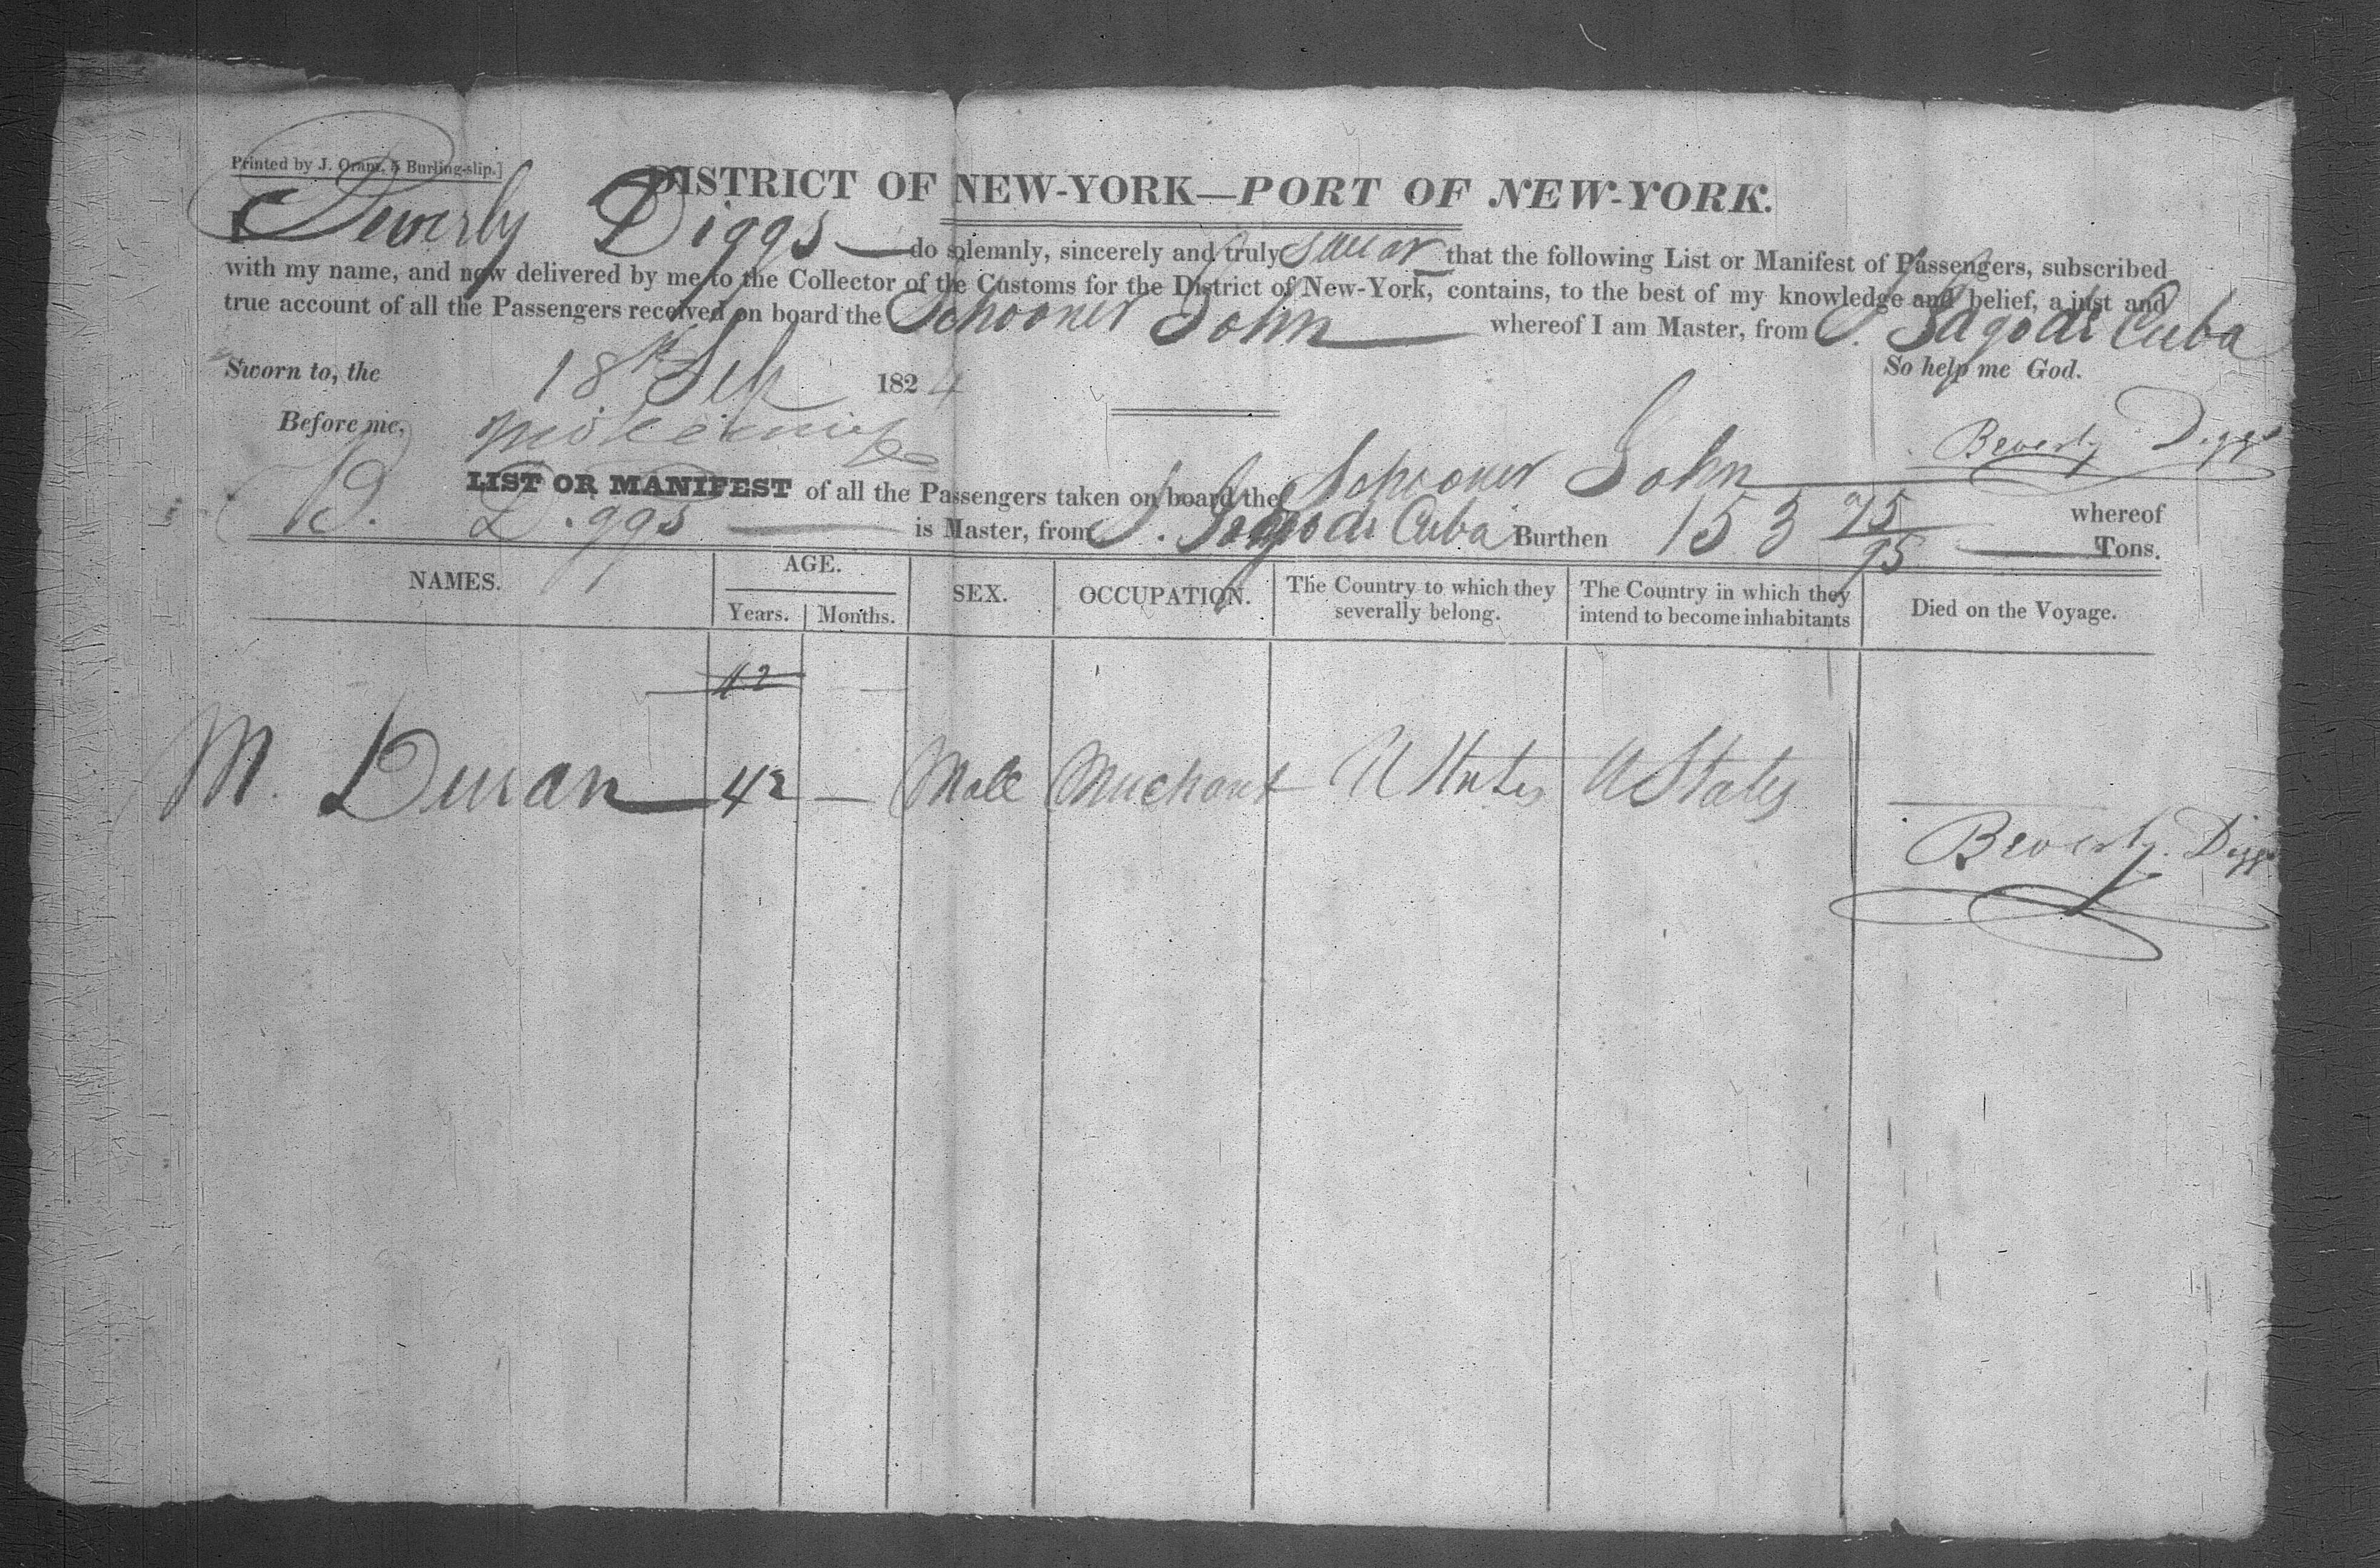 Printed by J. Oram, 5 Burling-slip.]
DISTRICT OF NEW-YORK—PORT OF NEW-YORK.
I Beverly Diggs — do solemnly, sincerely and truly Swear that the following List or Manifest of Passengers, subscribed
with my name, and now delivered by me to the Collector of the Customs for the District of New-York, contains, to the best of my knowledge and belief, a just and
true account of all the Passengers received on board the Schooner John — whereof I am Master, from S. Jago de Cuba
Sworn to, the 18th Sep 1824 So help me God.
Before me, Beverly Diggs
LIST OR MANIFEST of all the Passengers taken on board the Schooner John — whereof
B. Diggs — is Master, from S. Jago de Cuba Burthen 153 75/95 — Tons.
NAMES. AGE. Years. Months. SEX. OCCUPATION. The Country to which they severally belong. The Country in which they intend to become inhabitants Died on the Voyage.
42
M. Duran — 42 — Male Merchant U States U States —
Beverly Diggs